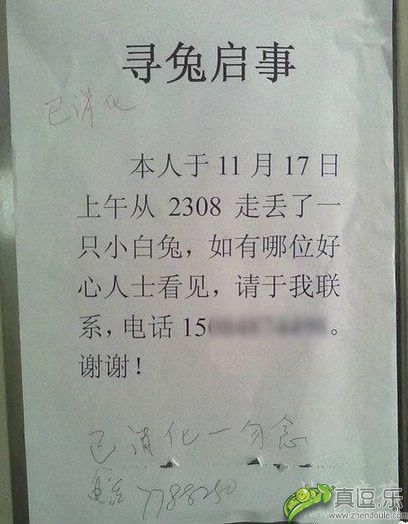 寻兔启事
已消化
本人于 11 月 17 日
上午从 2308 走丢了一
只小白兔，如有哪位好
心人士看见，请于我联
系，电话 15 。
谢谢！
已消化一勿念
电话 7788250
真逗.乐
www.zhendoule.com